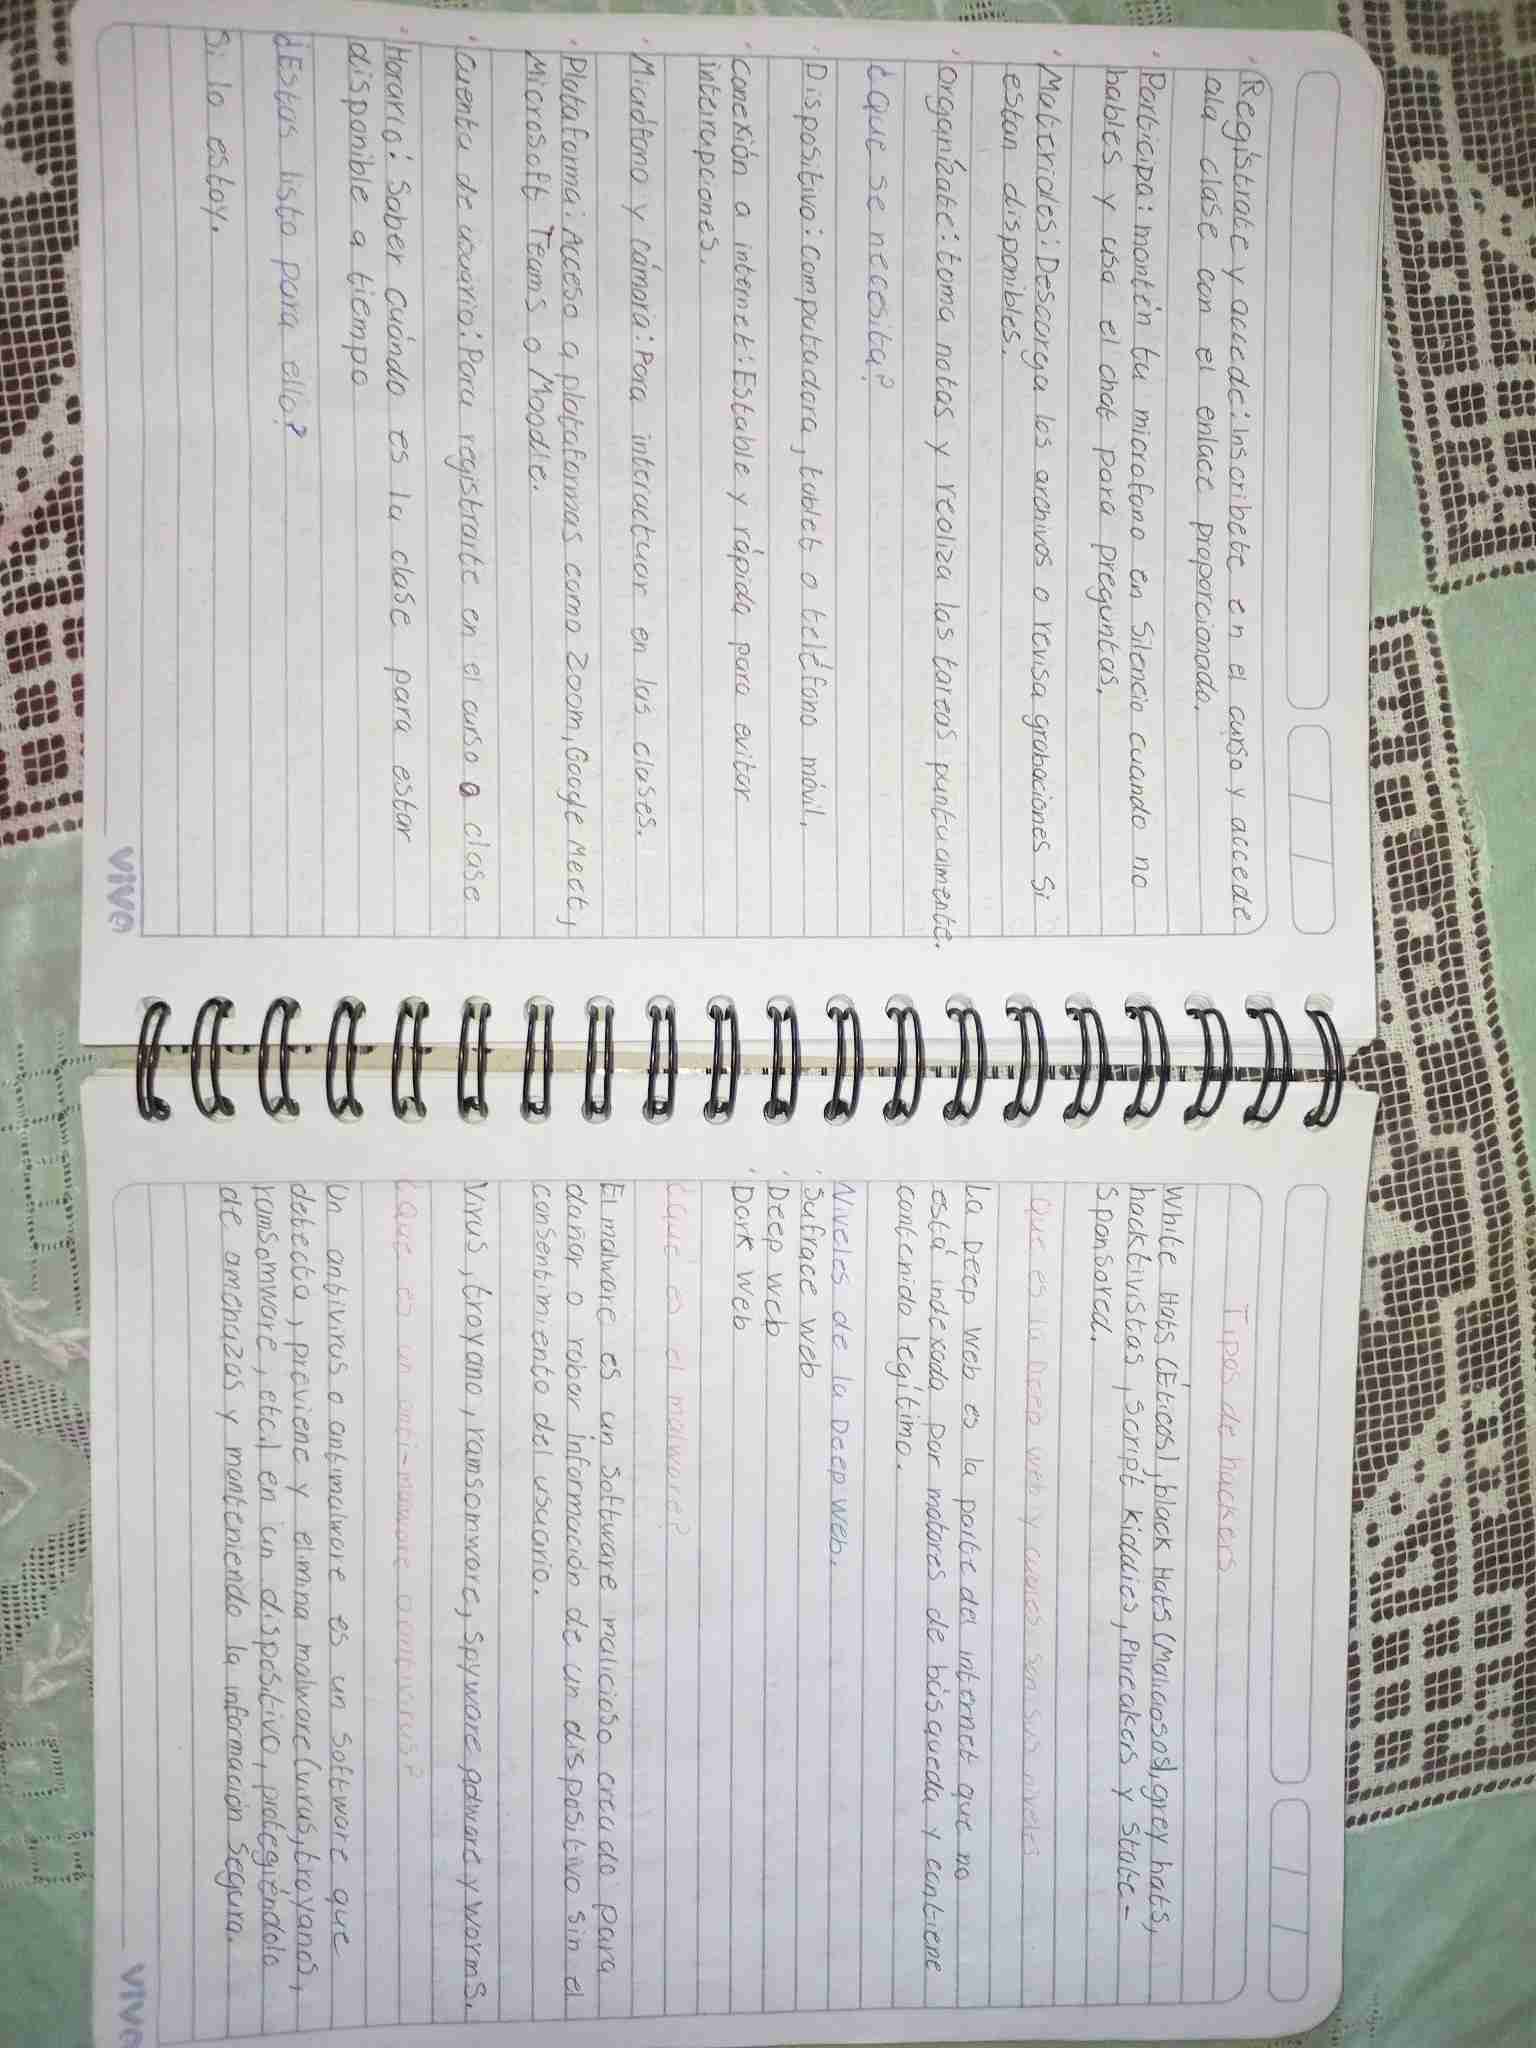 · Regístrate y accede: Inscribete en el curso y accede
ala clase con el enlace proporcionado.
· Participa: mantén tu microfono en Silencio cuando no
hables y usa el chat para preguntas.
· Materiales: Descarga los archivos o revisa grabaciones Si
estan disponibles.
· organízate: toma notas y realiza las tareas puntualmente.
¿que se necesita?
· Dispositivo: Computadora, tablet o teléfono móvil.
· conexión a internet: Estable y rápida para evitar
interrupciones.
· Micrófono y cámara: Para interactuar en las clases.
· Plataforma: Acceso a plataformas como Zoom, Google Meet,
Microsoft Teams o Moodle.
· Cuenta de usuario: Para registrarte en el curso o clase
· Horario: Saber cuándo es la clase para estar
disponible a tiempo
¿Estas listo para ello?
Si lo estoy.
vivo
Tipos de hackers
White Hats (Éticos), black Hats (Maliciosos), grey hats,
hacktivistas, Script Kiddies, Phreakers y State-
Sponsored.
Que es la Deep web y cuales son sus niveles
La Deep Web es la parte del internet que no
está indexada por motores de búsqueda y contiene
contenido legítimo.
Niveles de la Deep Web.
· Sufrace web
· Deep web
· Dark web
¿que es el malware?
El malware es un Software malicioso creado para
dañar o robar información de un dispositivo sin el
consentimiento del usuario.
Virus, troyano, ransomware, Spyware, adware y worms.
¿Que es un anti-malware o antivirus?
Un antivirus o antimalware es un software que
detecta, previene y elimina malware (virus, troyanos,
ramsomware, etc.) en un dispositivo, protegiéndolo
de amenazas y manteniendo la información Segura.
vivo